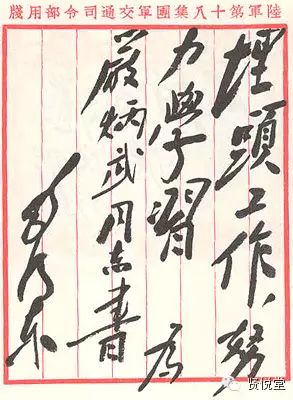 陸軍第十八集團軍交通司令部用牋
埋頭工作、努
力學習 為
嚴炳武同志書
毛澤东
贤悦堂